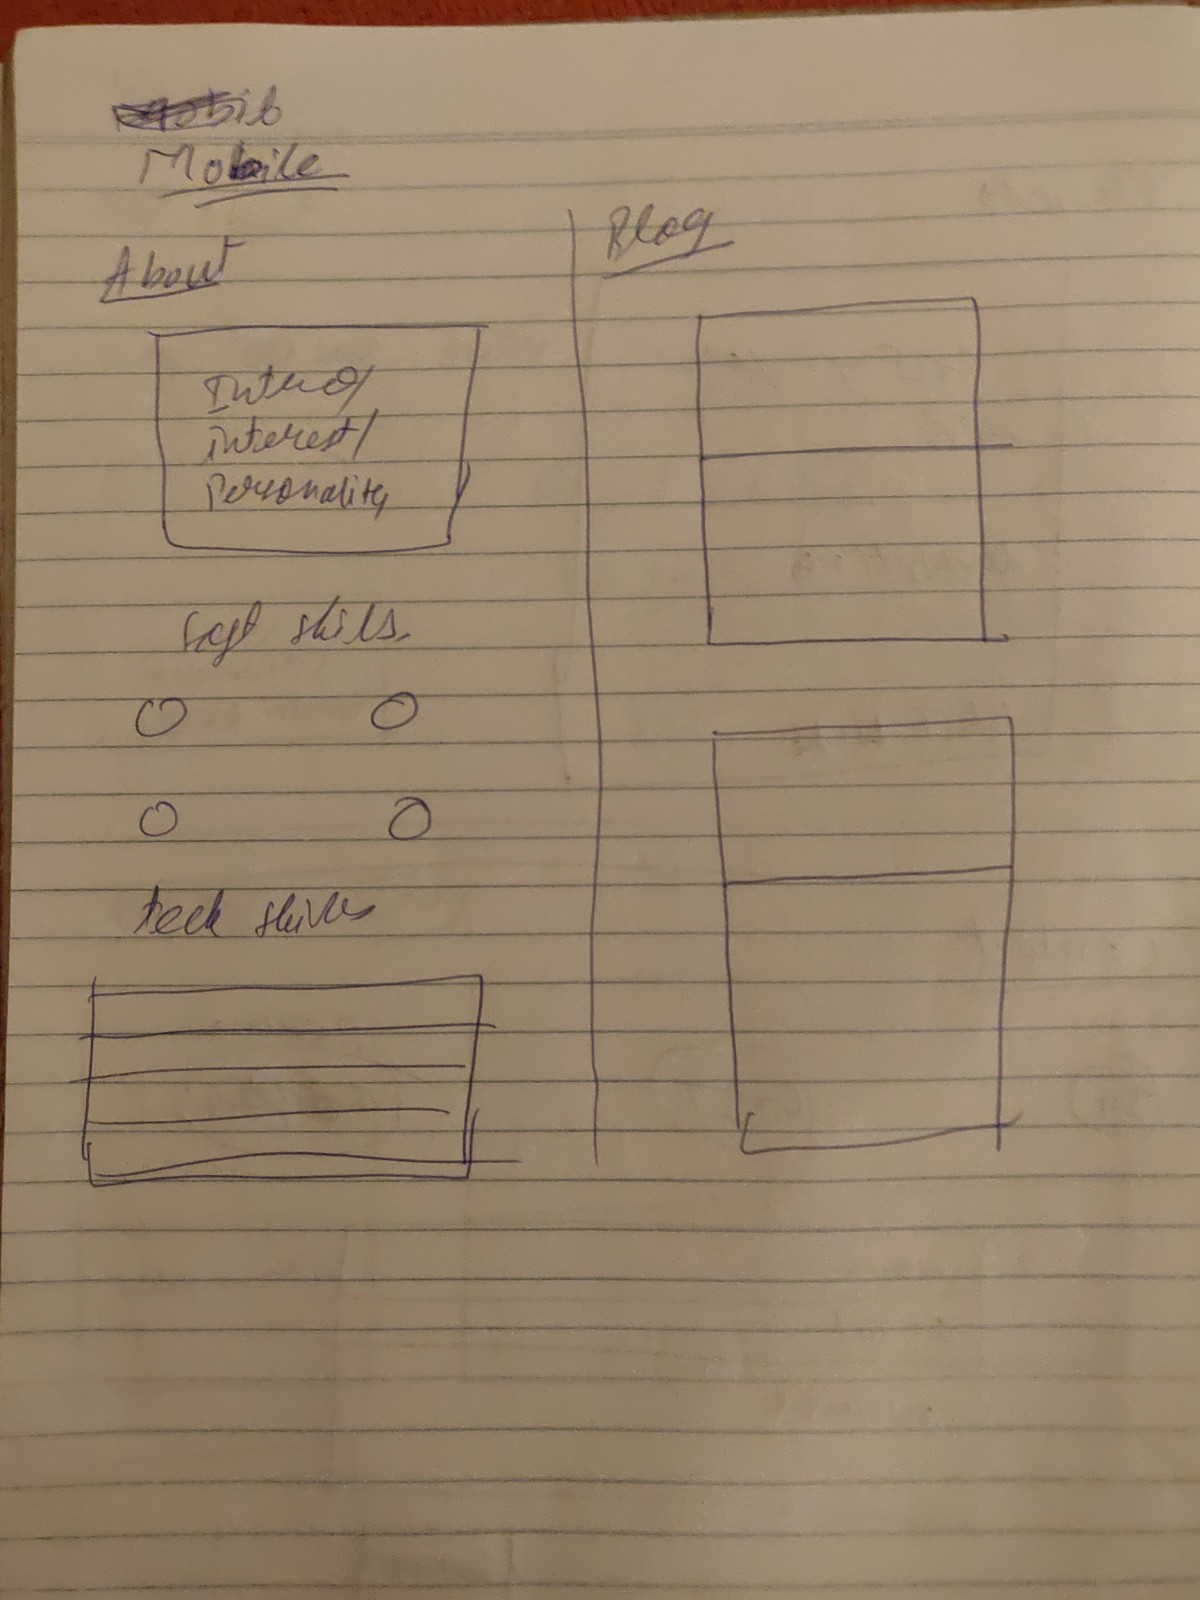 Mobile
About
Intro/
interest/
Personality
Soft skills.
tech skills
Blog